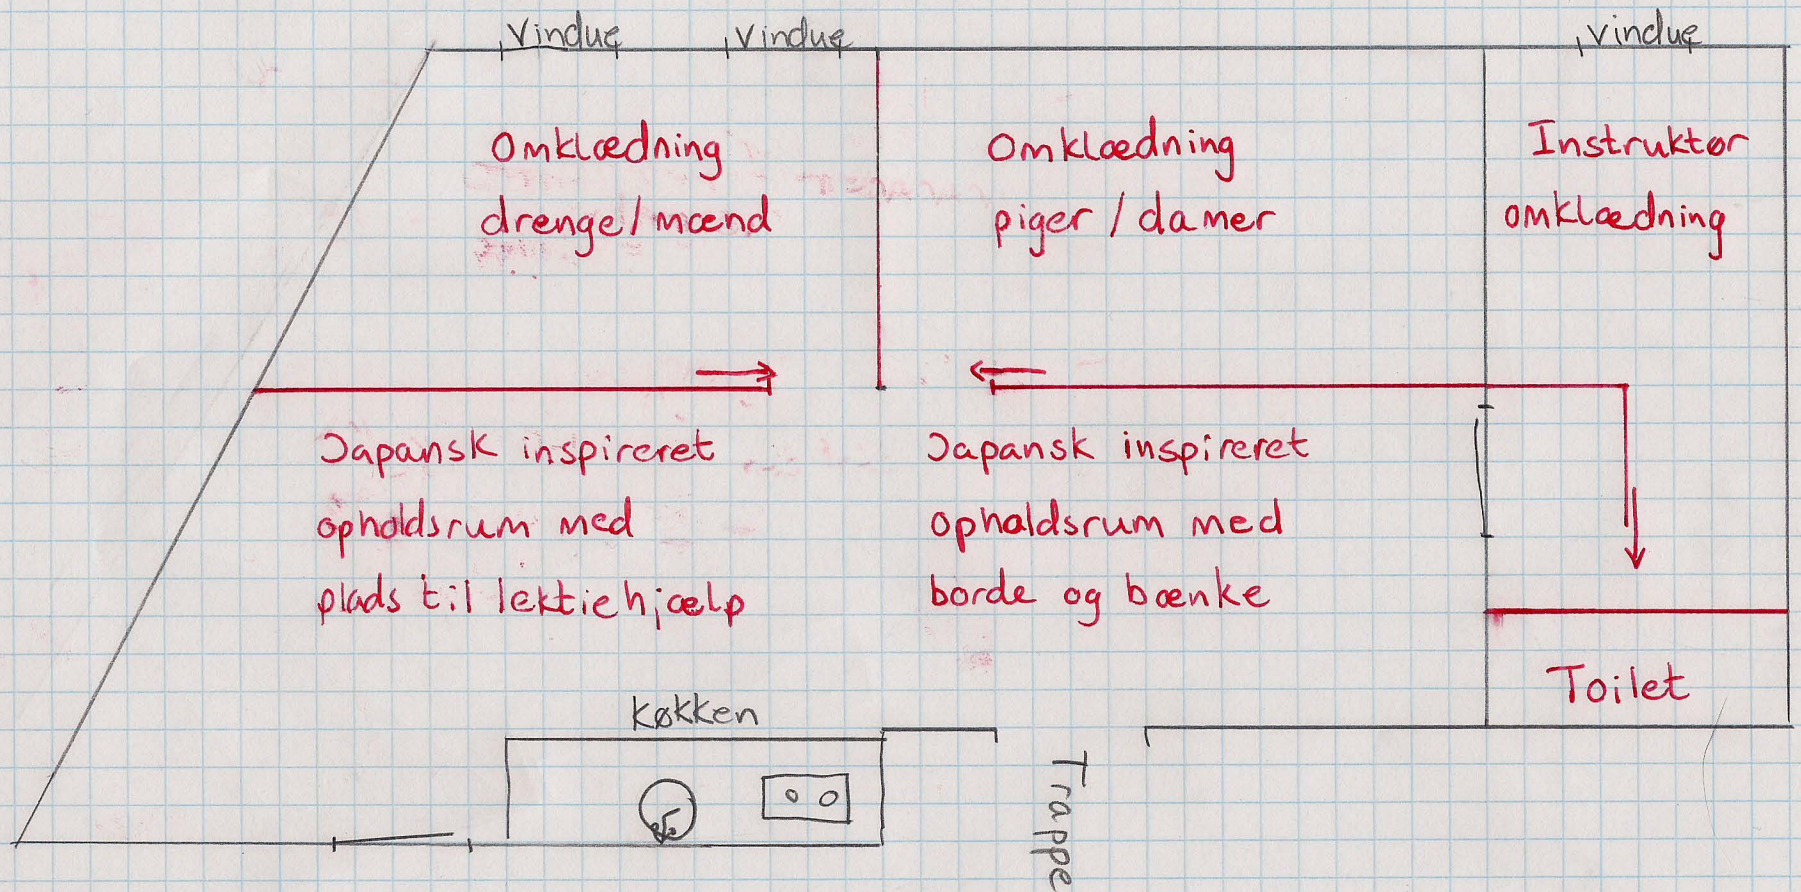 Vindue
Vindue
Vindue
Omklædning
drenge/mænd
Omklædning
piger / damer
Instruktør
omklædning
Japansk inspireret
opholdsrum med
plads til lektiehjælp
Japansk inspireret
opholdsrum med
borde og bænke
Toilet
Køkken
Trappe